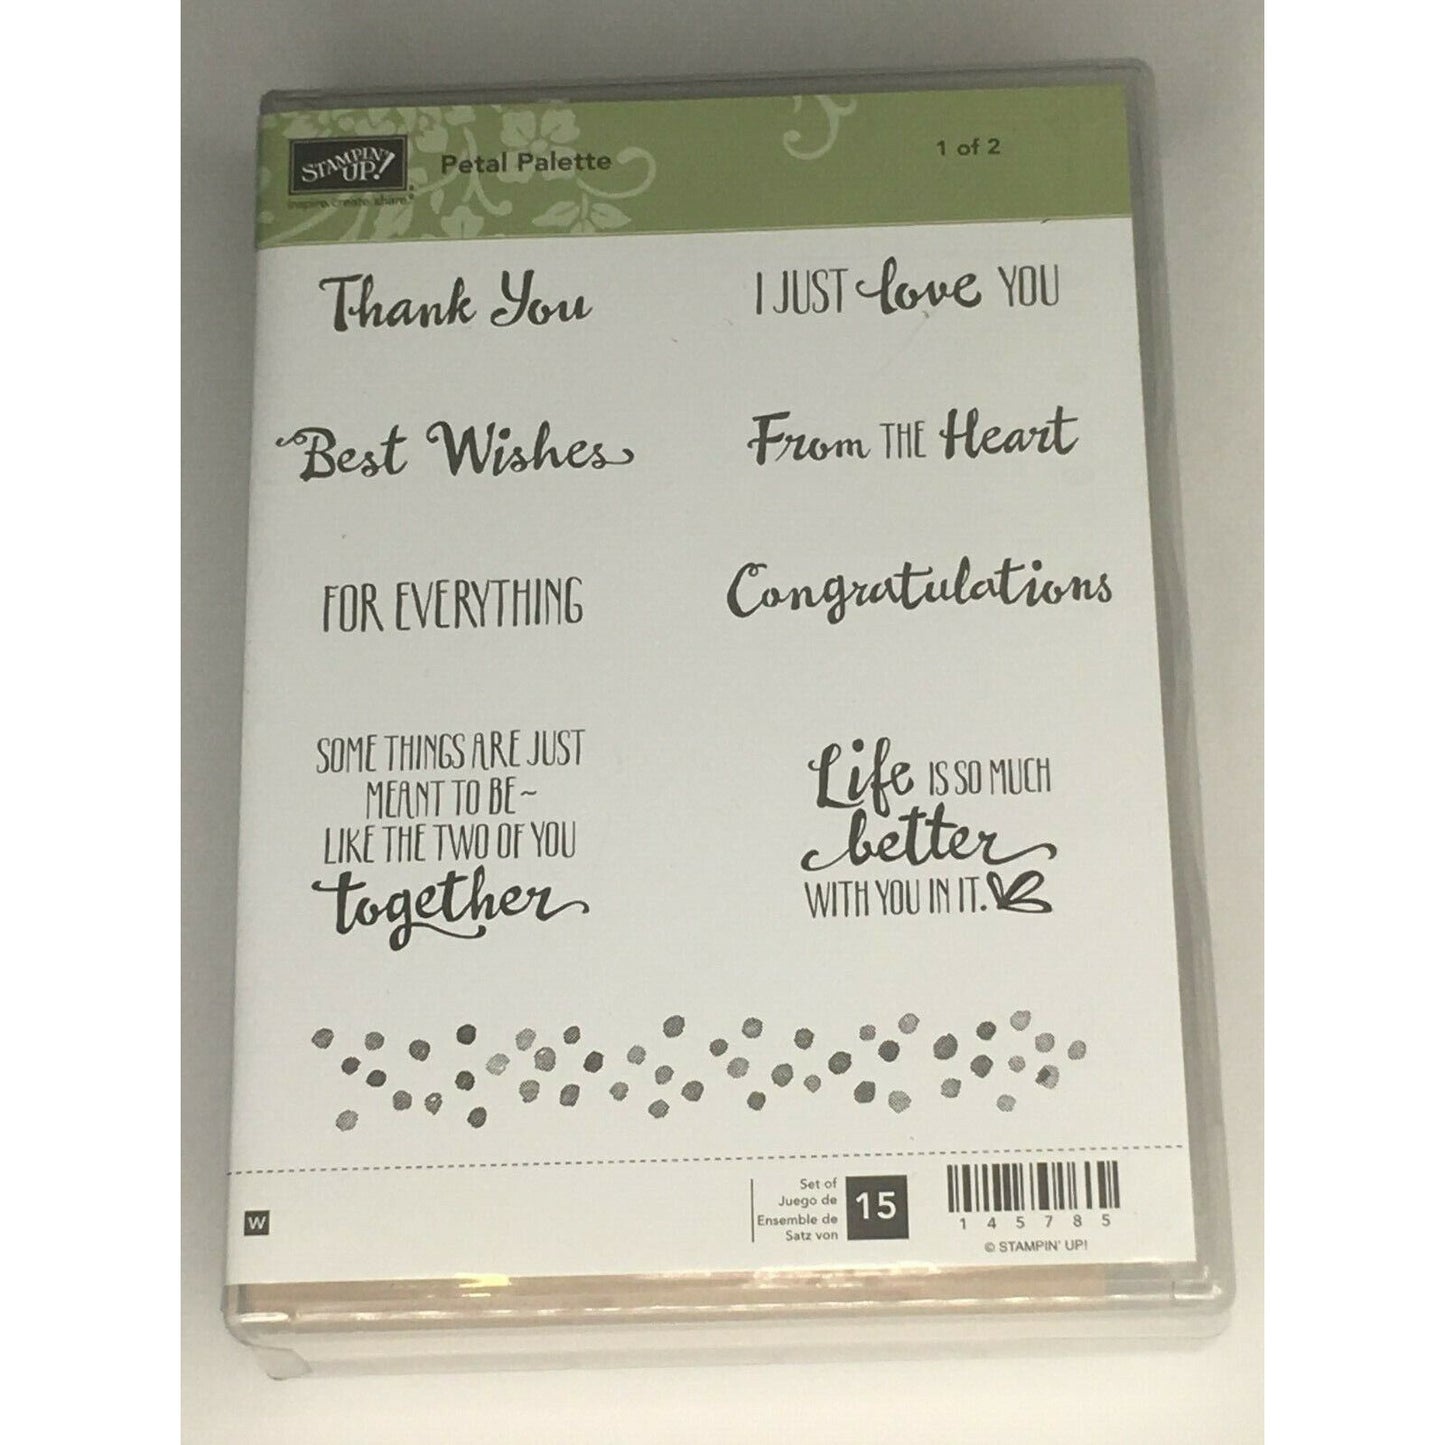 STAMPIN' UP!
inspire. create. share.®
Petal Palette
1 of 2
Thank You
I JUST love YOU
Best Wishes
From THE Heart
FOR EVERYTHING
Congratulations
SOME THINGS ARE JUST
MEANT TO BE~
LIKE THE TWO OF YOU
together
Life IS SO MUCH
better
WITH YOU IN IT.
W
Set of
Juego de
Ensemble de
Satz von
15
145785
© STAMPIN' UP!